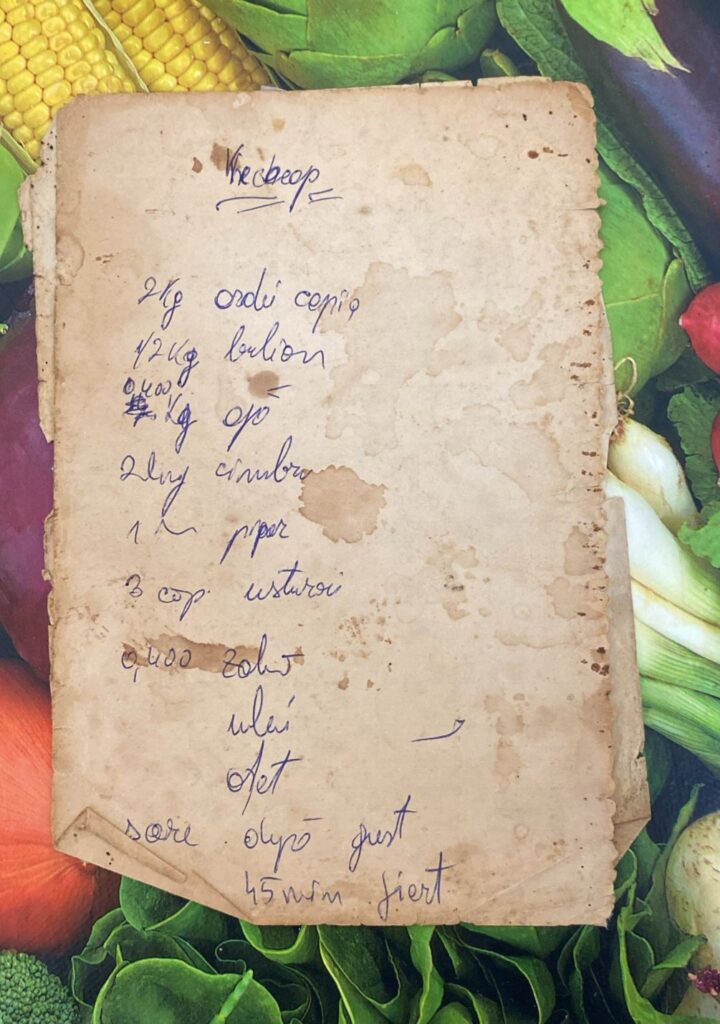 2 Kg ardei capia
1/2 Kg bulion
0,400
Kg apă
2 lng cimbru
1 ~ piper
3 cap. usturoi
0,400 zahăr
ulei
oțet
sare după gust
45 min fiert